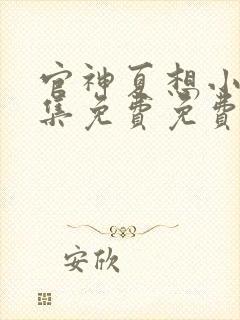 官神夏想小
集免费免费
安欣